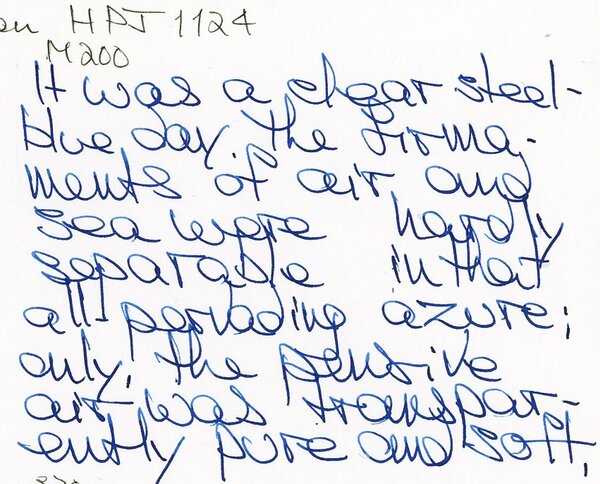 HPJ 1124
M200
It was a clear steel-
blue day. the firma-
ments of air and
sea were hardly
separable in that
all-pervading azure;
only, the pensive
air was transpar-
ently pure and soft,